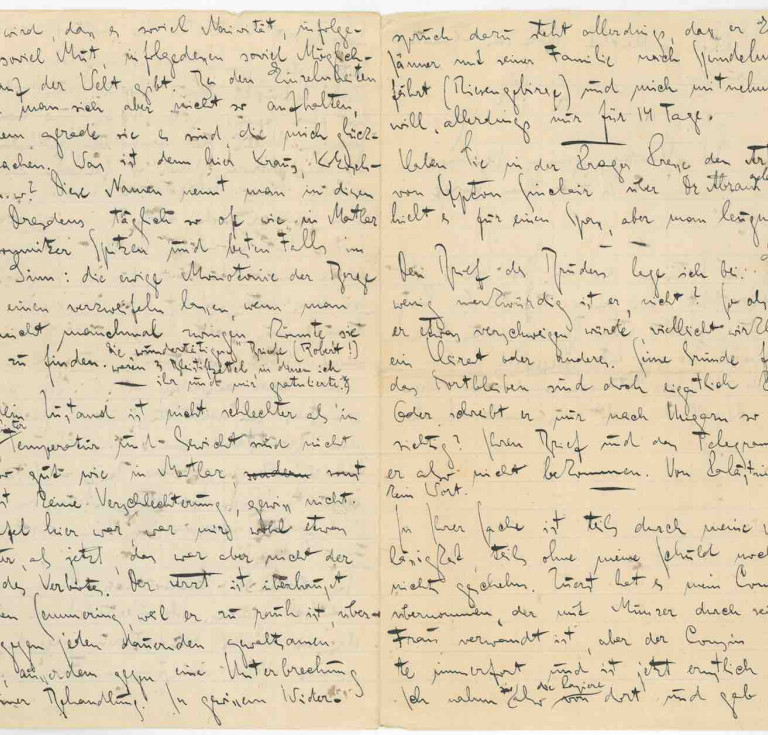 wird, dass es soviel Naivität, infolge-
soviel Mut, infolgedessen soviel Möglich-
auf der Welt gibt. Zu den Einzelheiten
man sich aber nicht so aufhalten,
gerade sie es sind, die mich glück-
machen. Was ist denn hier Kraus, Kokosch-
? Diese Namen nennt man in diesen
Dresdens täglich so oft wie in Matlar
Spitzen und besten Falls im
Sinn: die ewige Monotonie der Berge
einen verzweifeln lassen, wenn man
nicht manchmal zwingen könnte sie
zu finden. Die "wundertätigen" Briefe (Robert!)
waren 3 Bleistiftzettel in denen ich
ihr und mir gratulierte.
Zustand ist nicht schlechter als in
Temperatur und Gewicht sind nicht
so gut wie in Matlar sondern sonst
keine Verschlechterung, gewiss nicht.
hier war, war mir wohl etwas
als jetzt, das war aber nicht der
des Verbotes. Der Arzt ist überhaupt
Semmering, weil er zu rauh ist, über-
gegen jeden dauernden gewaltsamen
ausserdem gegen eine Unterbrechung
Behandlung. In gewissem Wider-
spruch dazu steht allerdings, dass er
Jänner mit seiner Familie nach Spindelm
fährt (Riesengebirge) und mich mitnehm
will, allerdings nur für 14 Tage.
Haben Sie in der Prager Presse den
von Upton Sinclair über Dr Abrams
hielt es für einen Spass, aber man leugn
Den Brief des Bruders lege ich bei.
wenig merkwürdig ist er, nicht? So als
er etwas verschweigen würde, vielleicht
ein Heirat oder anderes. Seine Gründe
das Fortbleiben sind doch eigentlich
Oder schreibt er nur nach Ungarn so
sichtig? Ihren Brief und das Telegramm
er aber nicht bekommen. Von Palästin
kein Wort.
In Ihrer Sache ist teils durch meine
lässigkeit teils ohne meine Schuld noch
nichts geschehn. Zuerst hat es mein Cou
übernommen, der mit Münzer durch sei
Frau verwandt ist, aber der Cousin
te immerfort und ist jetzt ernstlich
Ich nahm die Papiere von dort und gab